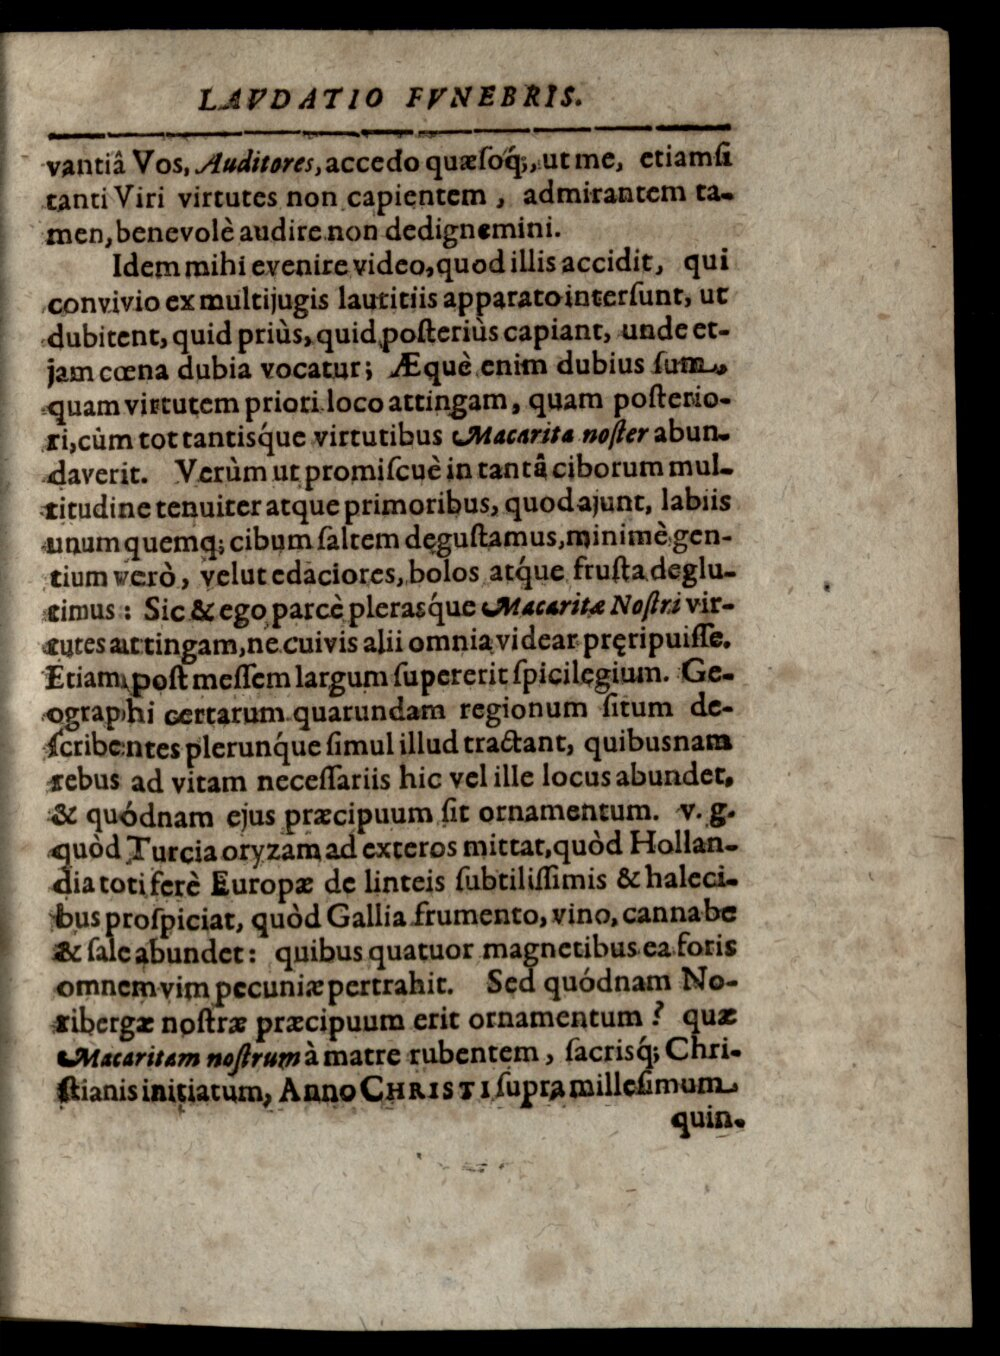 LAVDATIO FVNEBRIS.
vantiâ Vos, Auditores, accedo quæsoq́;, ut me, etiamsi
tanti Viri virtutes non capientem, admirantem ta-
men, benevolè audire non dedignemini.
Idem mihi evenire video, quod illis accidit, qui
convivio ex multijugis lautitiis apparato intersunt, ut
dubitent, quid priùs, quid posteriùs capiant, unde et-
jam cœna dubia vocatur; Æquè enim dubius sum,
quam virtutem priori loco attingam, quam posterio-
ri, cùm tot tantisq́ue virtutibus Macarita noster abun-
daverit. Verùm ut promiscuè in tantâ ciborum mul-
titudine tenuiter atque primoribus, quod ajunt, labiis
unumquemq; cibum saltem dęgustamus, minimè gen-
tium verò, velut edaciores, bolos atq́ue frusta deglu-
timus: Sic & ego parcè plerasq́ue Macaritæ Nostri vir-
tutes attingam, ne cuivis alii omnia videar pręripuisse.
Etiam post messem largum supererit spicilęgium. Ge-
ographi certarum quarundam regionum situm de-
scribentes plerunq́ue simul illud tractant, quibusnam
rebus ad vitam necessariis hic vel ille locus abundet,
& quódnam ejus præcipuum sit ornamentum. v. g.
quòd Turcia oryzam ad exteros mittat, quòd Hollan-
dia toti ferè Europæ de linteis subtilissimis & haleci-
bus prospiciat, quòd Gallia frumento, vino, cannabe
& sale abundet: quibus quatuor magnetibus ea foris
omnem vim pecuniæ pertrahit. Sed quódnam No-
ribergæ nostræ præcipuum erit ornamentum? quæ
Macaritam nostrum à matre rubentem, sacrisq́; Chri-
stianis initiatum, Anno CHRISTI supra millesimum
quin-